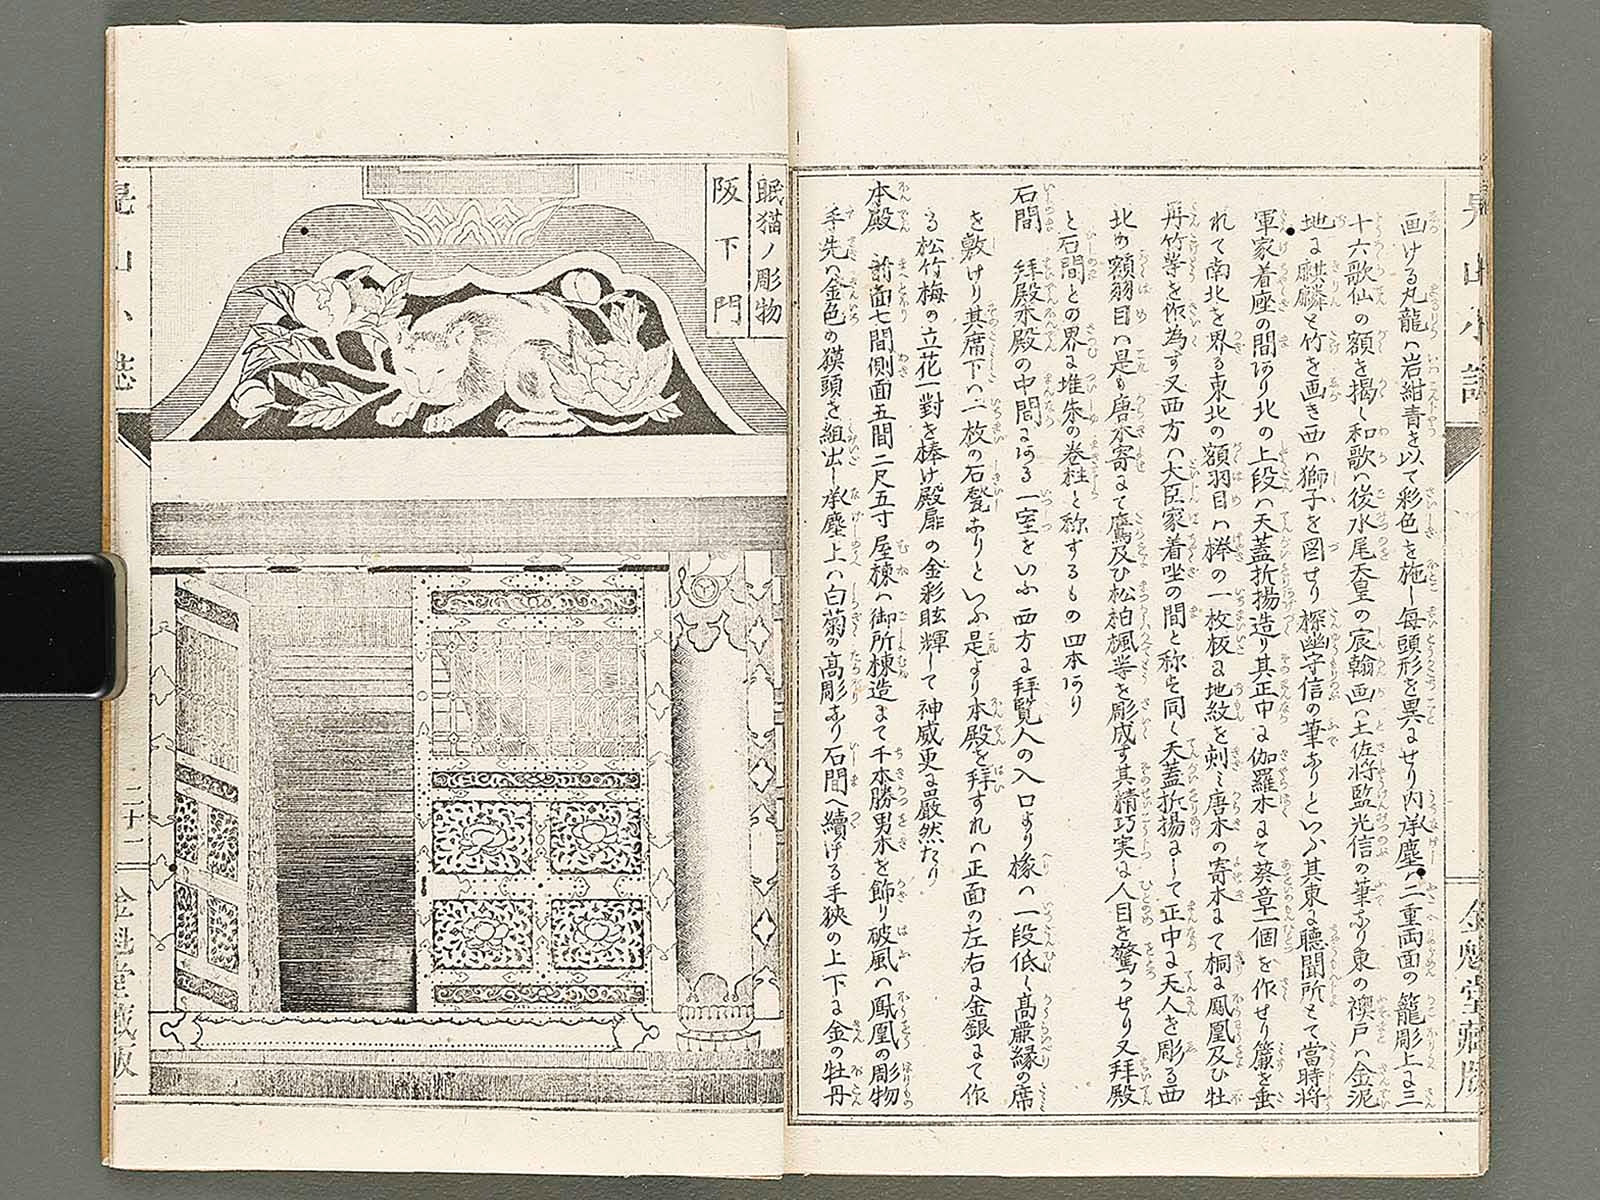 画ける丸龍ハ岩紺青を以て彩色を施し毎頭形を異にせり内承塵ハ二重両面の籠彫上に三
十六歌仙の額を掲く和歌ハ後水尾天皇の宸翰画ハ土佐将監光信の筆なり東の襖戸ハ金泥
地に麒麟と竹を画き西ハ獅子を図せり探幽守信の筆なりといふ其東に聴聞所とて当時将
軍家着座の間あり北の上段ハ天蓋折揚造り其正中に伽羅木にて葵章一個を作せり簾を垂
れて南北を界る東北の額羽目ハ欅の一枚板に地紋を刺ミ唐木の寄木にて桐に鳳凰及ひ牡
丹竹等を作為す又西方ハ大臣家着坐の間と称す同く天蓋折揚にして正中に天人を彫る西
北の額羽目ハ是も唐木寄にて鷹及ひ松柏楓等を彫成す其精巧実に人目を驚かせり又拝殿
と石間との界に堆朱の巻柱と称するもの四本あり
石間 拝殿本殿の中間にある一室をいふ西方に拝覧人の入口より椽ハ一段低く高麗縁の席
を敷けり其席下ハ二枚の石甃なりといふ是より本殿を拝すれハ正面の左右に金銀にて作
る松竹梅の立花一對を棒け殿扉の金彩眩輝して神威更に嚴然たり
本殿 前面七間側面五間二尺五寸屋棟ハ御所棟造にて千本勝男木を飾り破風ハ鳳凰の彫物
手先ハ金色の獏頭を組出し承塵上ハ白菊の高彫なり石間へ續ける手狹の上下に金の牡丹
金魁堂蔵版
眠猫ノ彫物
阪下門
晃山小誌
二十二
金魁堂蔵版